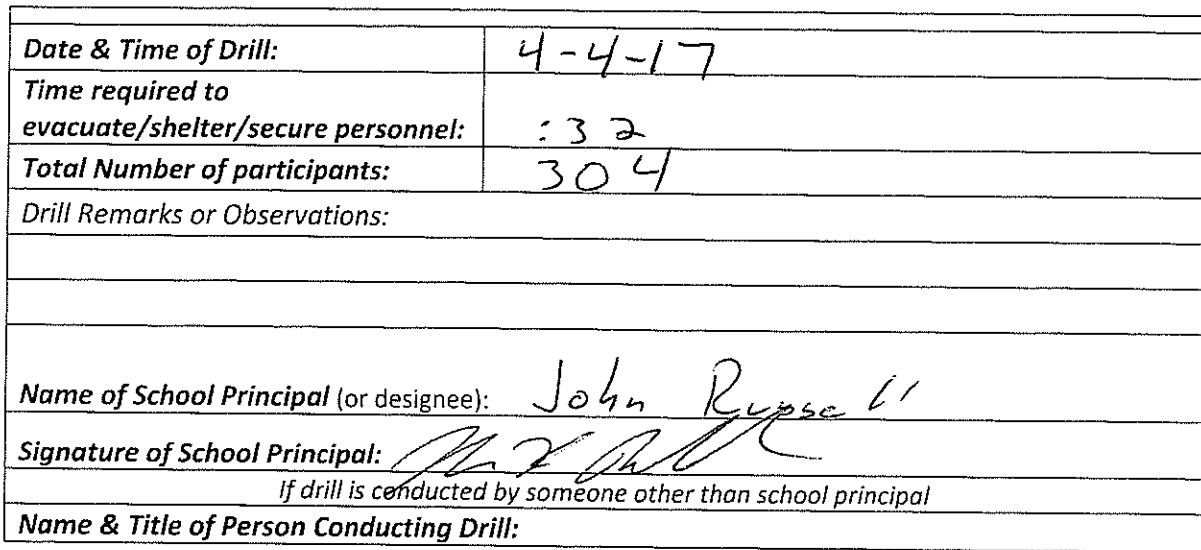 Date & Time of Drill: 4-4-17
Time required to
evacuate/shelter/secure personnel: :32
Total Number of participants: 304
Drill Remarks or Observations:
Name of School Principal (or designee): John Russell
Signature of School Principal:
If drill is conducted by someone other than school principal
Name & Title of Person Conducting Drill: